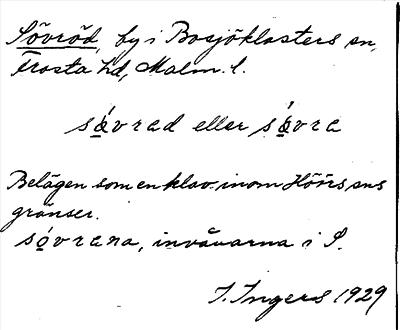 Sövröd, by i Bosjöklosters sn,
Frosta hd, Malm. l.
sǻvrad eller sǻvra
Belägen som en klav inom Höörs sns
gränser.
sǫ́vrana, invånarna i S.
I. Ingers 1929